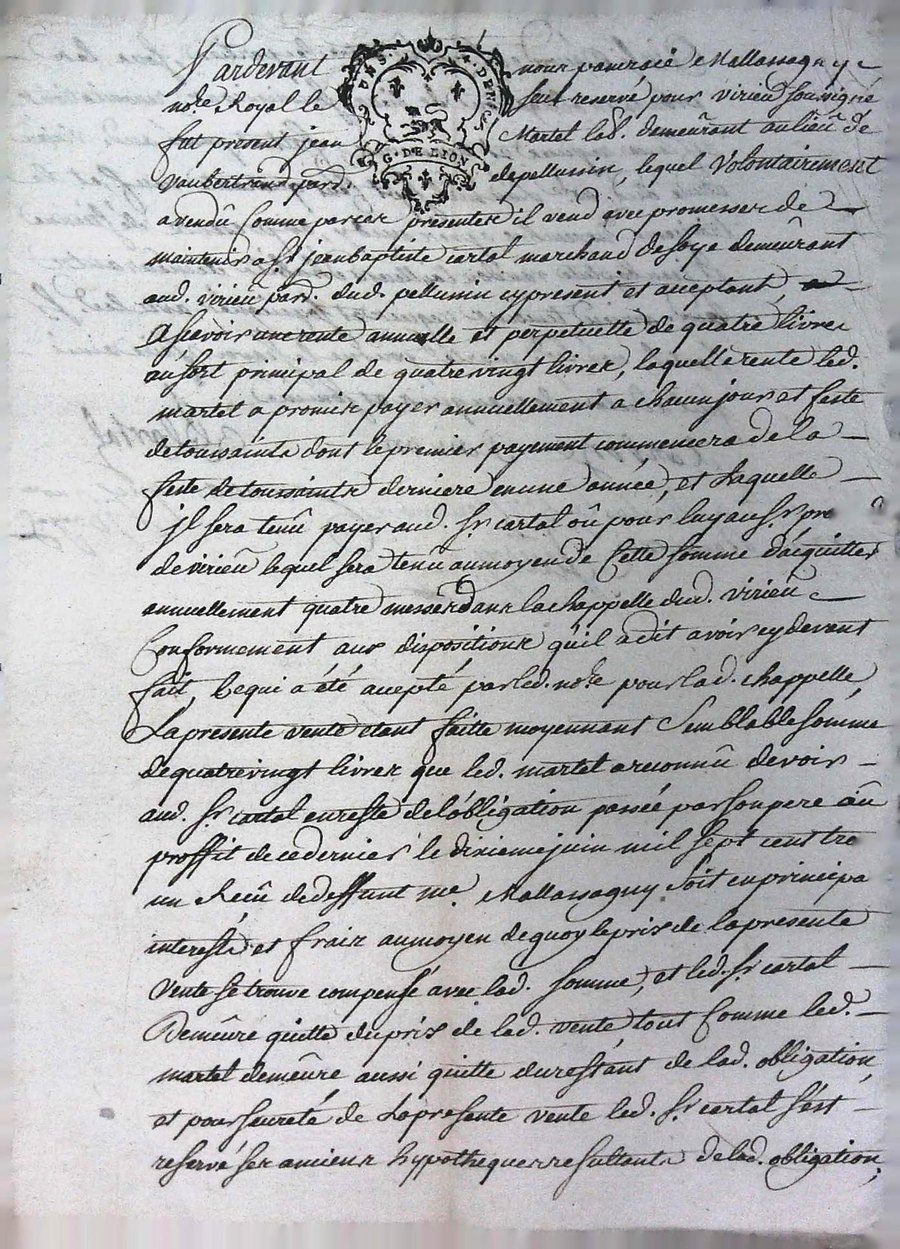 Pardevant nous pancracé Mallassagny
no.re Royal le seul reservé pour virieu soussigné
fut present jean Martel lab.r demeûrant au lieu de
vaubertrand par.d. de pellussin, lequel Volontairement
a vendû Comme par ces presentes il vend avec promesses de
maintenir a s.r jean baptiste cartal marchand de soye demeûrant
aud. virieu par.d. dud. pellussin cy present et acceptant,
Ascavoir une rente annuelle et perpetuelle de quatre livres
au sort principal de quatre vingt livres, laquelle rente led.
martel a promis payer annuellement a chacun jour et feste
de toussaints dont le premier payement commencera de la
feste de toussaints derniere en une année, et Laquelle
jl sera tenû payer aud. s.r cartal oû pour luy au s.r
de virieu lequel sera tenû au moyen de Cette somme d'acquitter
annuellement quatre messes dans la chappelle dud. virieu
Conformement aux dispositions qu'il a dit avoir cy devant
fait, Ce qui a été accepté par led. no.re pour lad. chappelle
La presente vente etant faitte moyennant Semblable somme
de quatre vingt livres que led. martel a reconnû devoir
aud. s.r cartal en reste de l'obligation passée par son pere au
proffit de ce dernier le dixieme juin mil sept cent tre
un Recû de deffunt me. Mallassagny soit en principa
interests et frais au moyen de quoy le prix de la presente
vente se trouve compensé avec lad. somme, et led. s.r cartal
Demeûre quitte du prix de lad. vente tout Comme led.
martel demeûre aussi quitte du restant de lad. obligation,
et pour seureté de La presente vente led. s.r cartal s'est
reservé ses anciens hypotheques resultants de lad. obligation,
G. DE LION